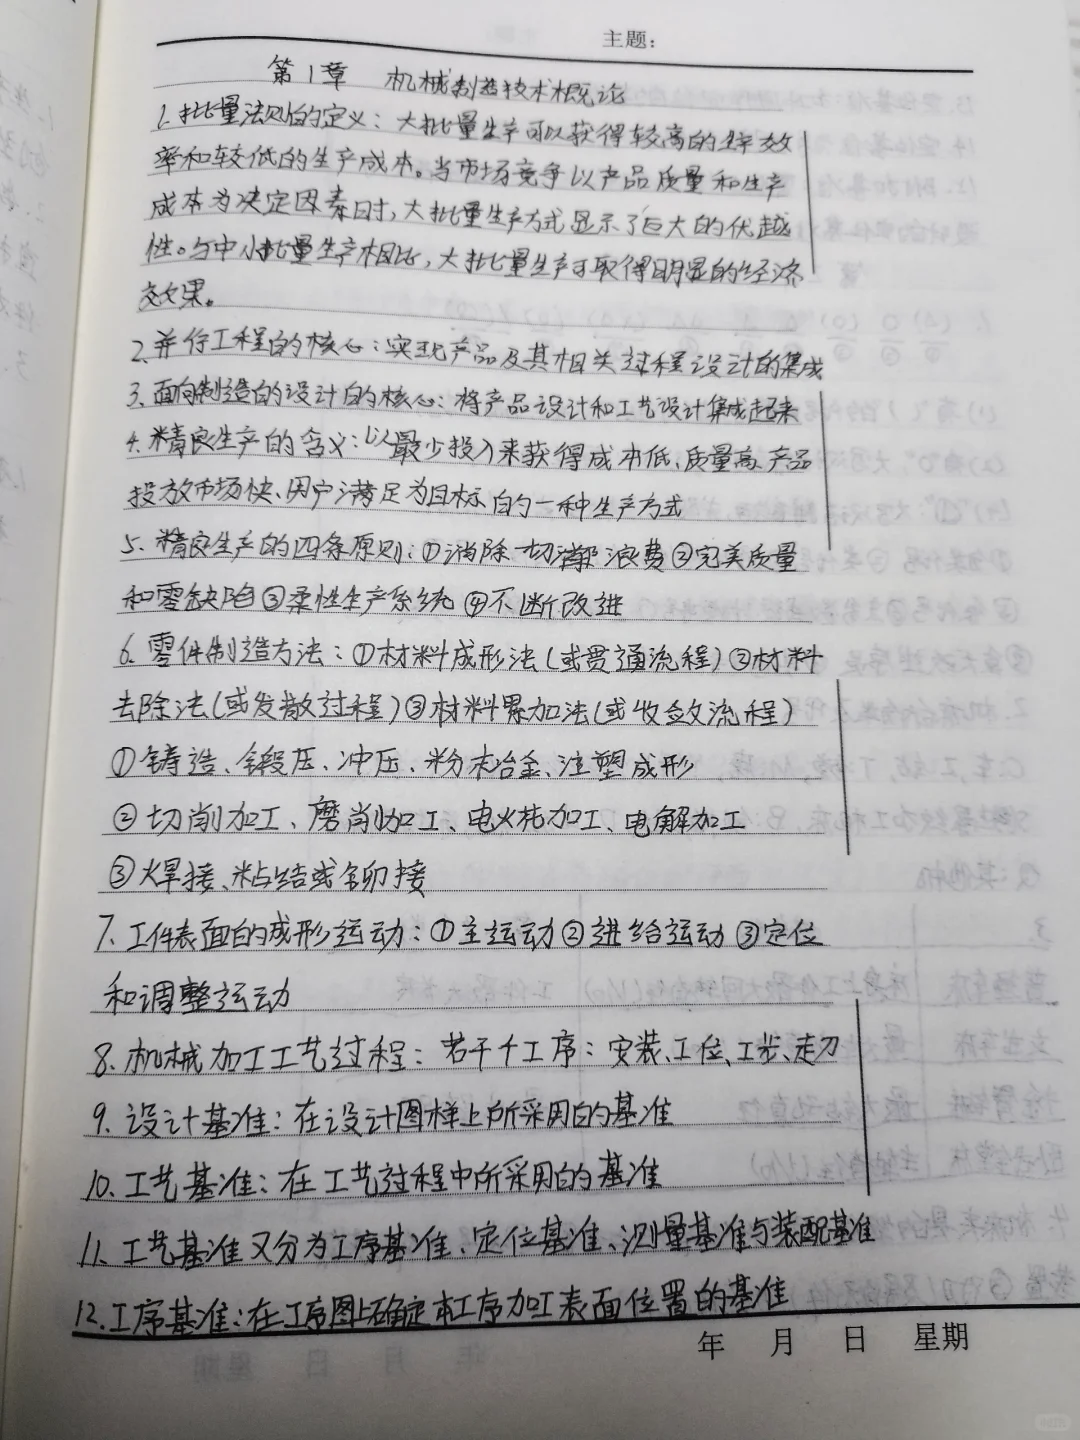 主题:
第1章 机械制造技术概论
1.批量法则的定义:大批量生产可以获得较高的生产效
率和较低的生产成本。当市场竞争以产品质量和生产
成本为决定因素时,大批量生产方式显示了巨大的优越
性。与中小批量生产相比,大批量生产可取得明显的经济
效果。
2.并行工程的核心:实现产品及其相关过程设计的集成
3.面向制造的设计的核心:将产品设计和工艺设计集成起来
4.精良生产的含义:以最少投入来获得成本低、质量高、产品
投放市场快、用户满足为目标的一种生产方式
5.精良生产的四条原则:①消除一切浪费②完美质量
和零缺陷③柔性生产系统④不断改进
6.零件制造方法:①材料成形法(或贯通流程)②材料
去除法(或发散过程)③材料累加法(或收敛流程)
①铸造、锻压、冲压、粉末冶金、注塑成形
②切削加工、磨削加工、电火花加工、电解加工
③焊接、粘结或铆接
7.工件表面的成形运动:①主运动②进给运动③定位
和调整运动
8.机械加工工艺过程:若干个工序:安装、工位、工步、走刀
9.设计基准:在设计图样上所采用的基准
10.工艺基准:在工艺过程中所采用的基准
11.工艺基准又分为工序基准、定位基准、测量基准与装配基准
12.工序基准:在工序图上确定本工序加工表面位置的基准
年 月 日 星期